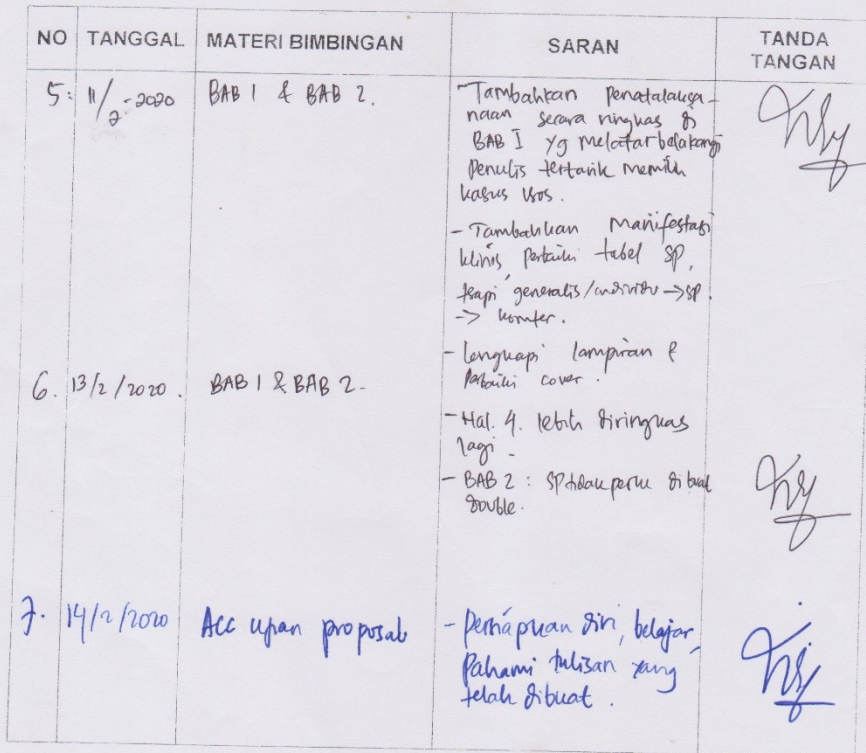 NO TANGGAL MATERI BIMBINGAN SARAN TANDA TANGAN
5. 11/2-2020 BAB 1 & BAB 2. - Tambahkan penatalaksa-
naan secara ringkas di
BAB I yg melatarbelakangi
penulis tertarik memilih
kasus
- Tambahkan manifestasi
klinis, perbaiki tabel SP,
terapi generalis/individu -> SP.
->
- lengkapi lampiran &
perbaiki cover.
6. 13/2/2020. BAB 1 & BAB 2.
- Hal. 4. lebih diringkas
lagi.
- BAB 2 : SP tidak perlu dibuat
double.
7. 14/2/2020 Acc ujian proposal - persiapkan diri, belajar,
pahami tulisan yang
telah dibuat.